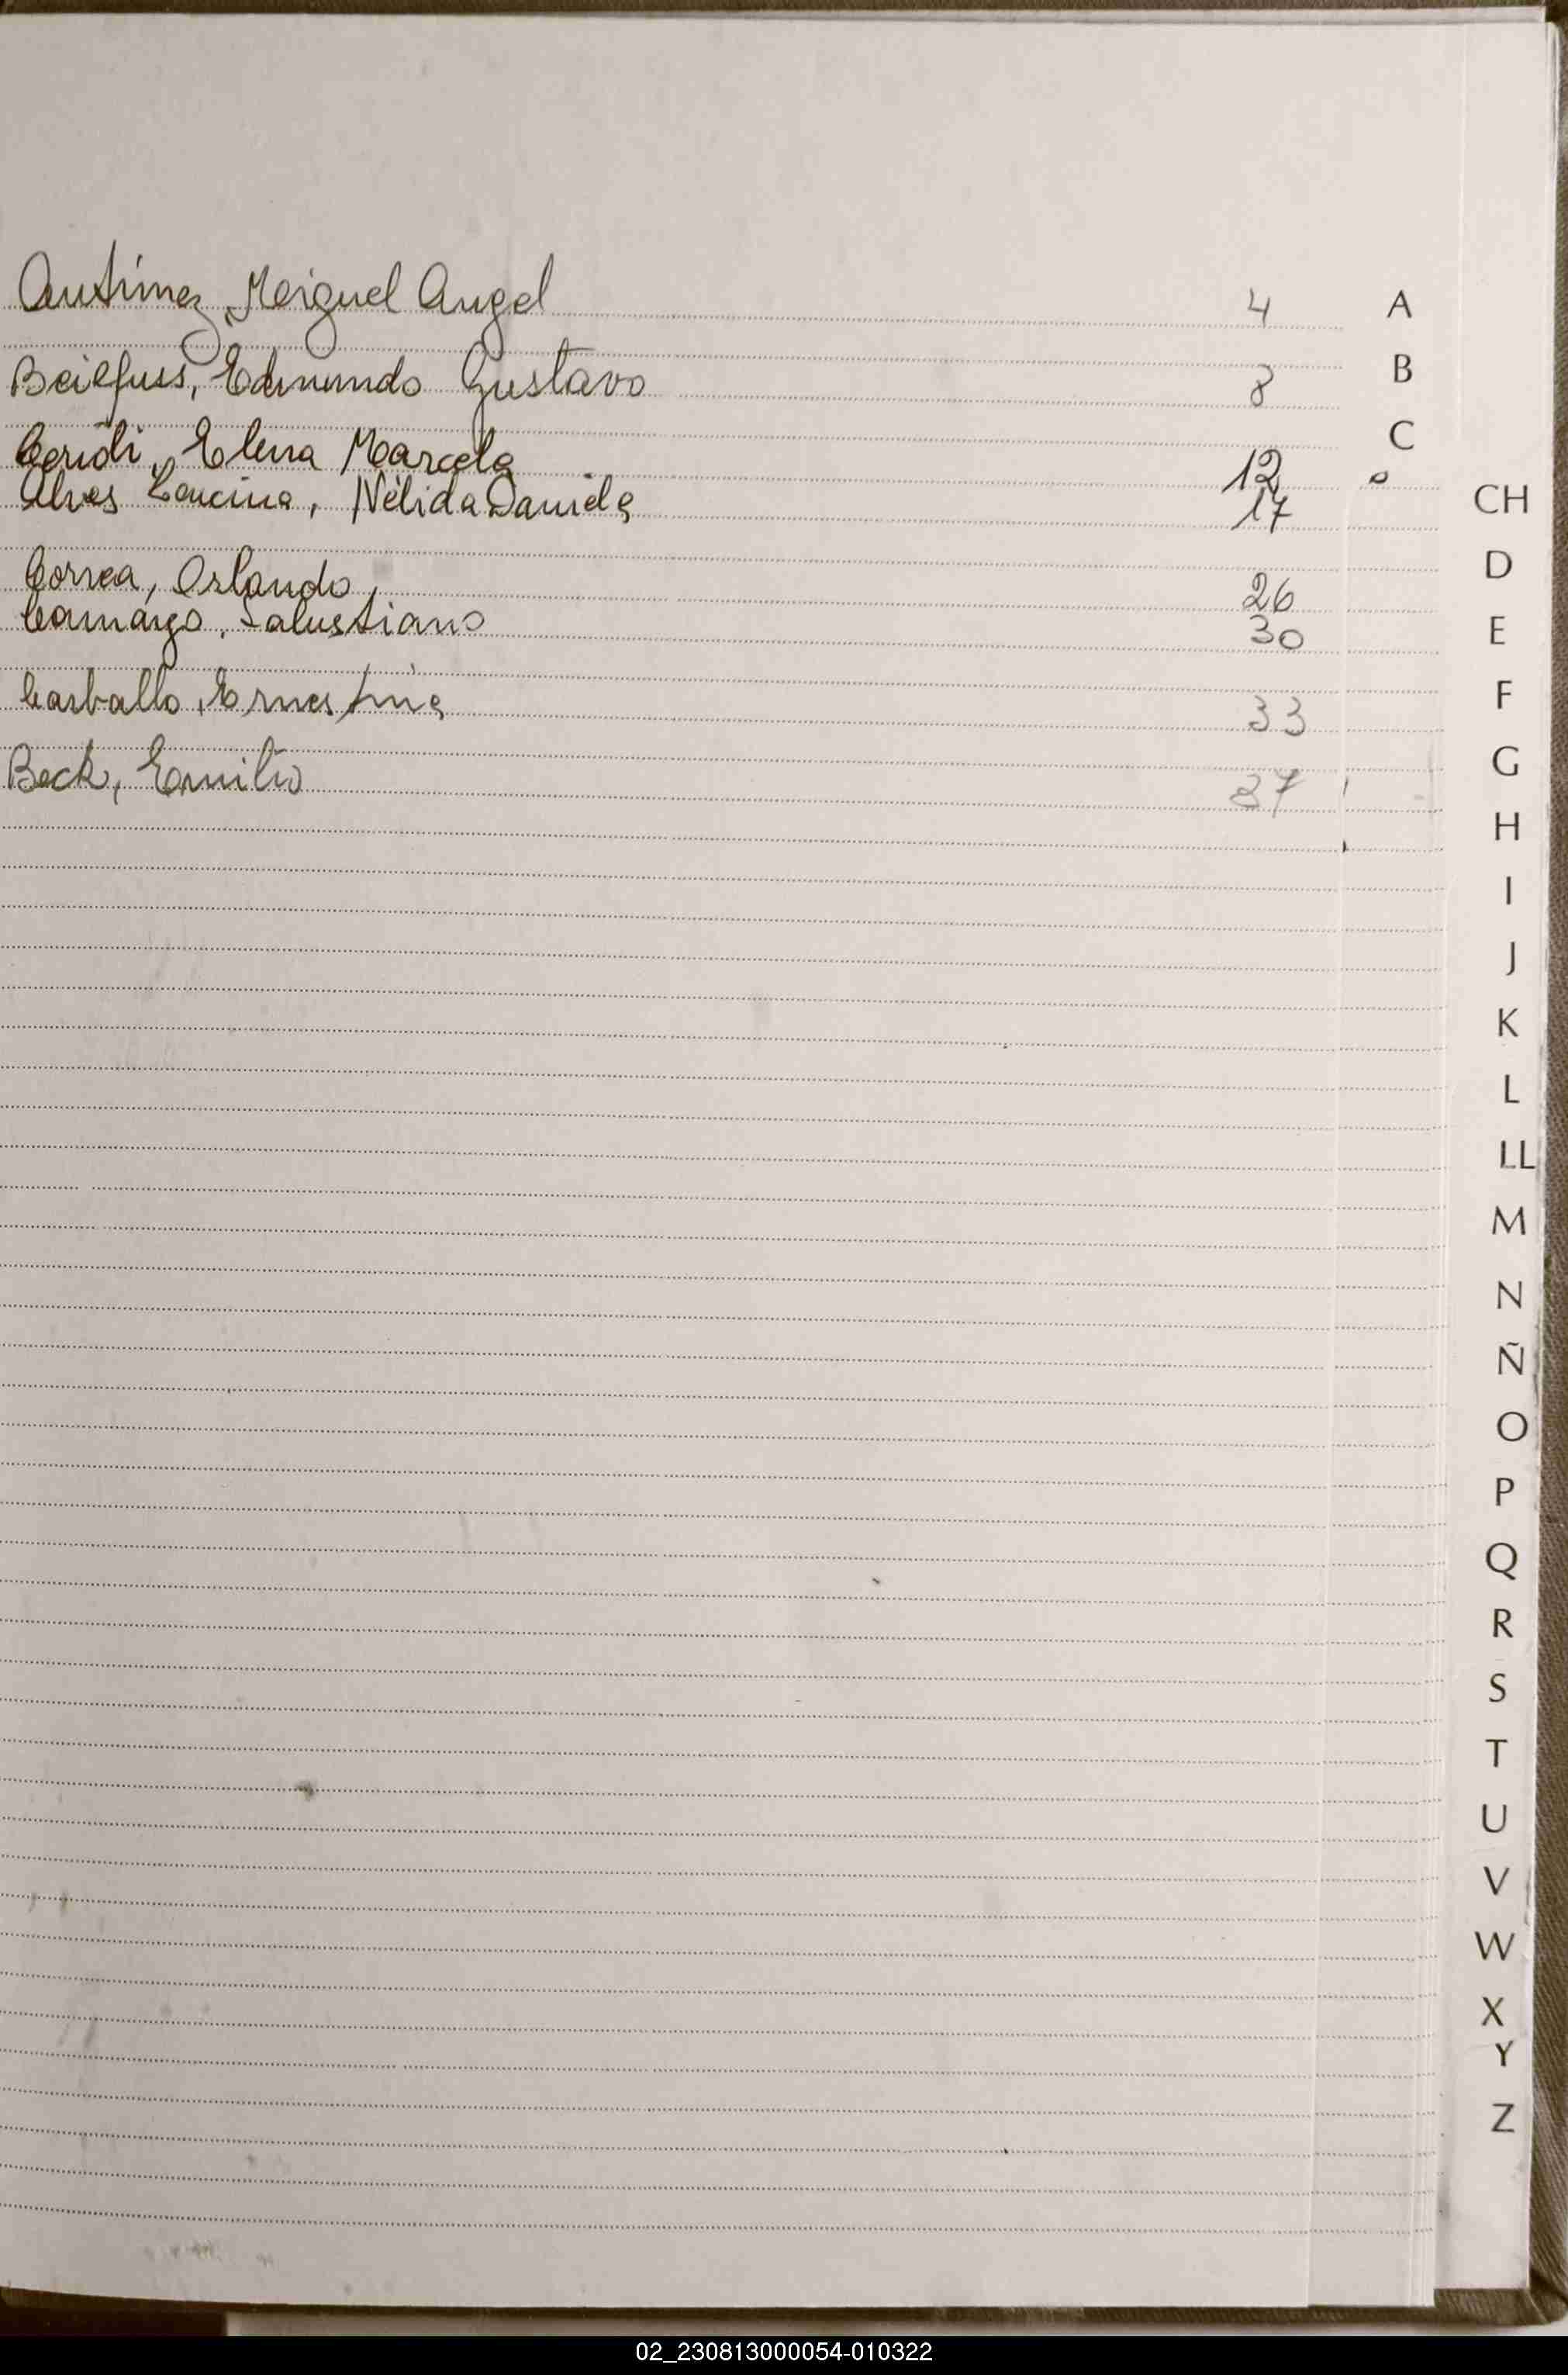 Antimez, Meiguel Angel 4 A
Beilfuss, Edmundo Gustavo 8 B
C
Ceridi, Elena Marcela 12
Alves Lencina, Nélida Daniela 17 CH
D
Correa, Orlando 26
Camargo, Salustiano 30 E
Carballo, Ernestina 33 F
G
Beck, Emilio 37
H
I
J
K
L
LL
M
N
Ñ
O
P
Q
R
S
T
U
V
W
X
Y
Z
02_230813000054-010322